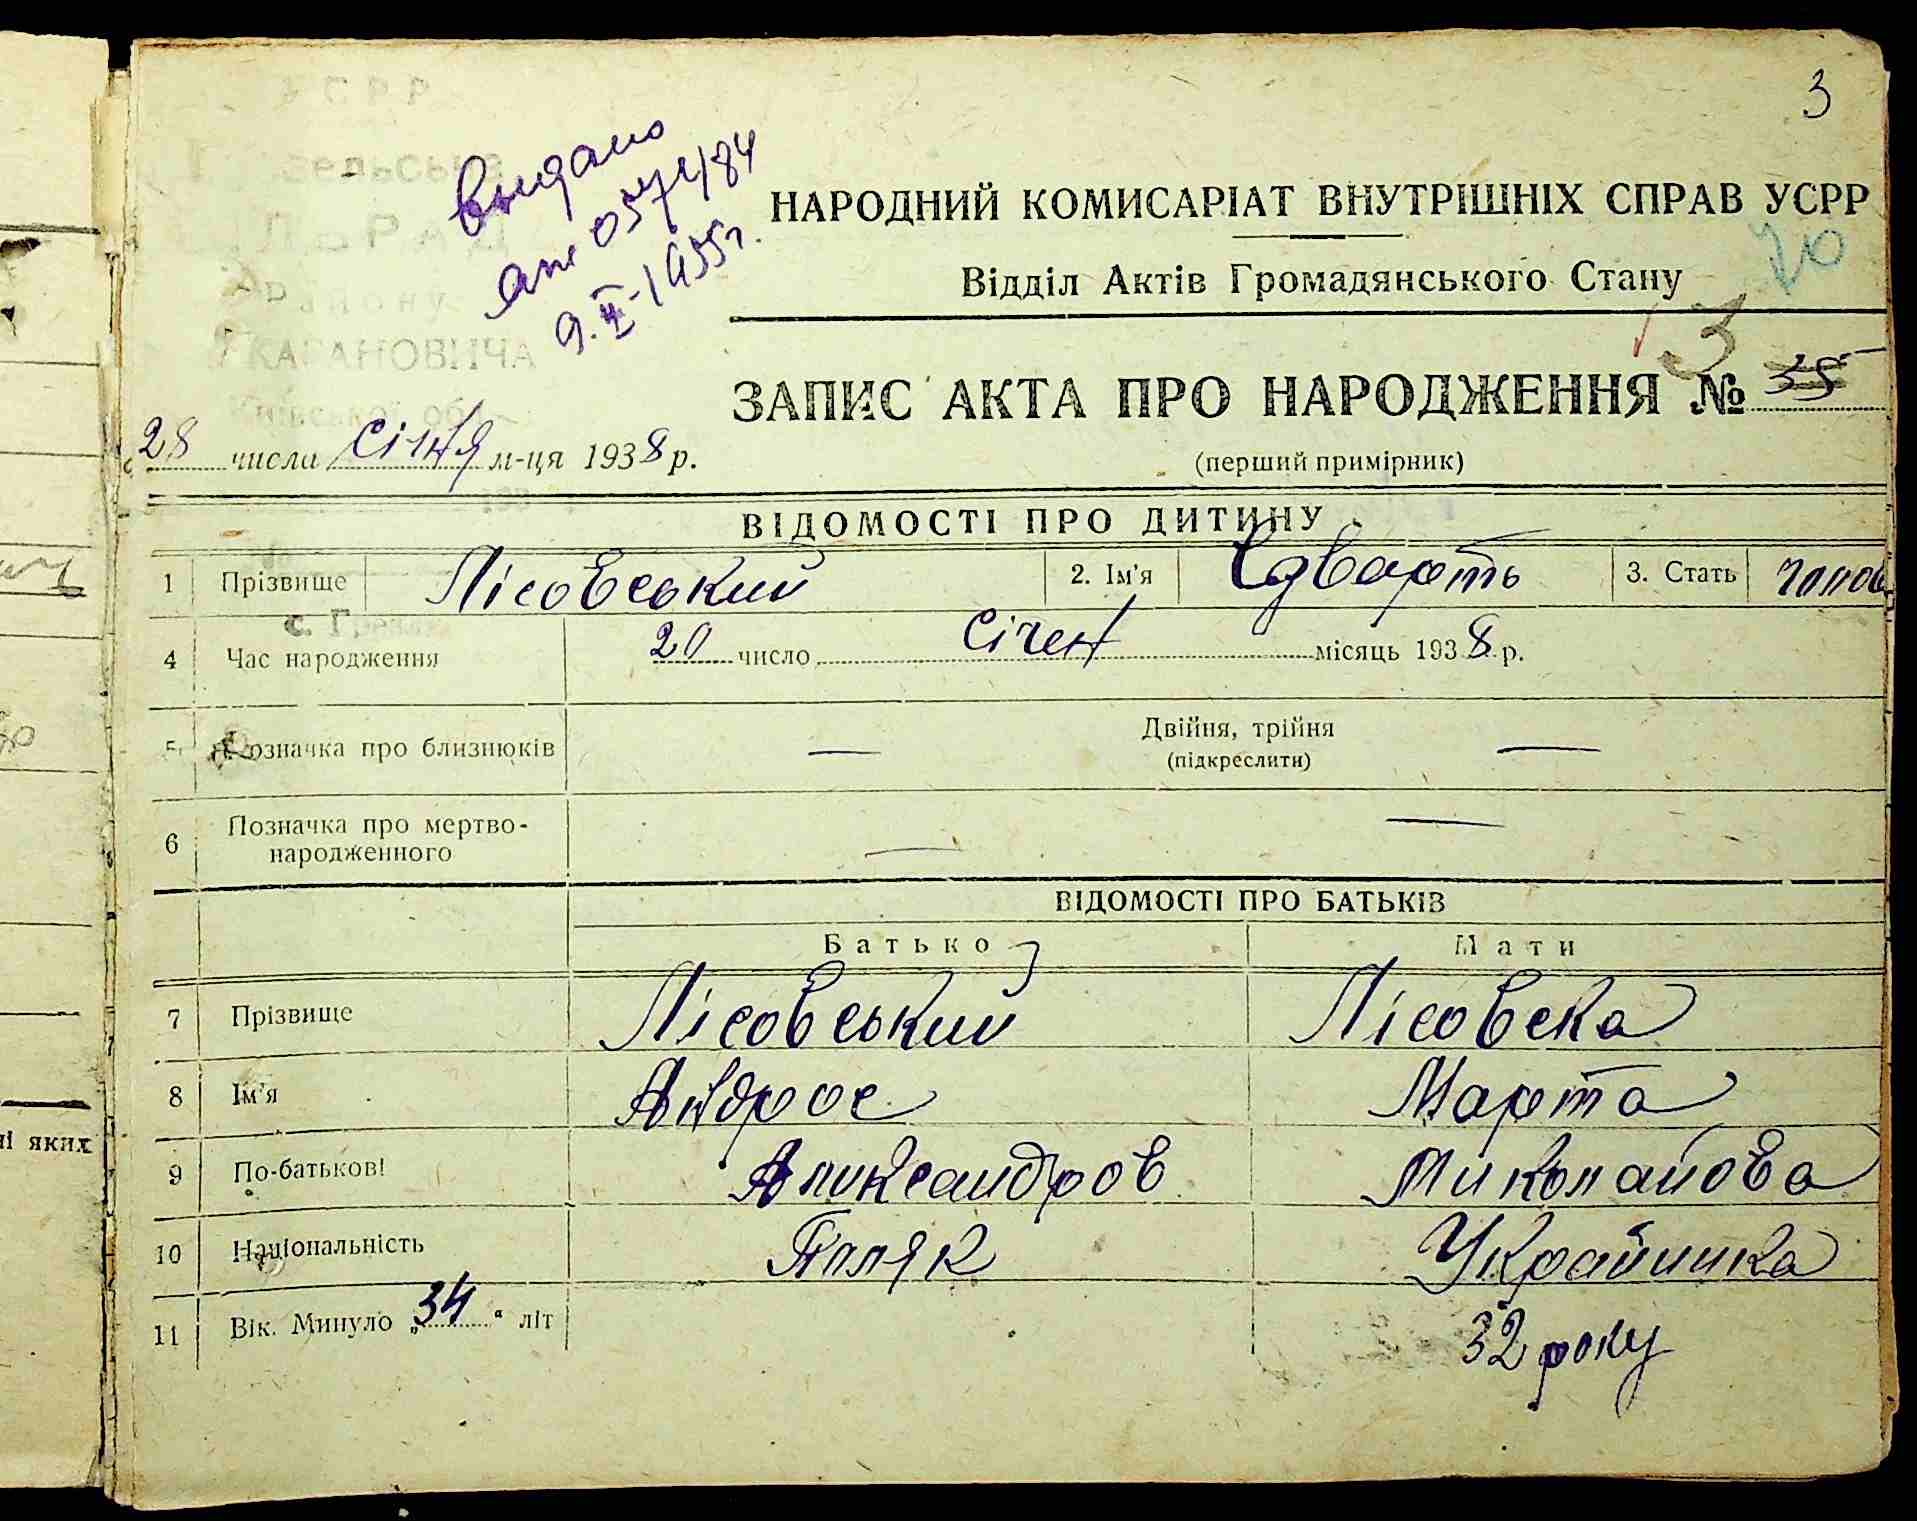 3
УСРР
выдано
9.II-1955г.
КАГАНОВИЧА
Київської обл.
НАРОДНИЙ КОМИСАРІАТ ВНУТРІШНІХ СПРАВ УСРР
70
Відділ Актів Громадянського Стану
3
ЗАПИС АКТА ПРО НАРОДЖЕННЯ № 35
28 числа Січня м-ця 1938 р.
(перший примірник)
ВІДОМОСТІ ПРО ДИТИНУ
1 Прізвище Лісовський 2. Ім'я Едварть 3. Стать чолов
4 Час народження 20 число Січен місяць 1938 р.
5 Позначка про близнюків — Двійня, трійня —
(підкреслити)
6 Позначка про мертво-
народженного — —
ВІДОМОСТІ ПРО БАТЬКІВ
Батько Мати
7 Прізвище Лісовський Лісовска
8 Ім'я Андрос Марта
9 По-батькові Аликсандров Миколайова
10 Національність Поляк Українка
11 Вік. Минуло „34“ літ 32 року
і яких